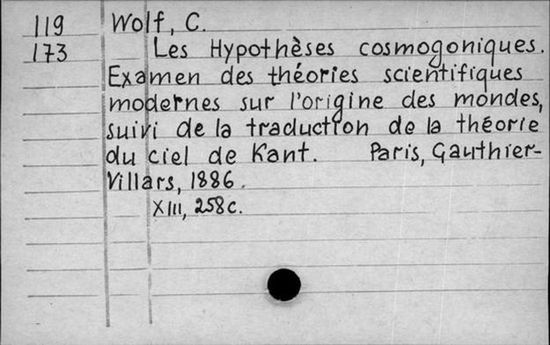 119 Wolf, C.
173 Les Hypothèses cosmogoniques.
Examen des théories scientifiques
modernes sur l'origine des mondes,
suivi de la traduction de la théorie
du ciel de Kant. Paris, Gauthier-
Villars, 1886.
XIII, 258c.